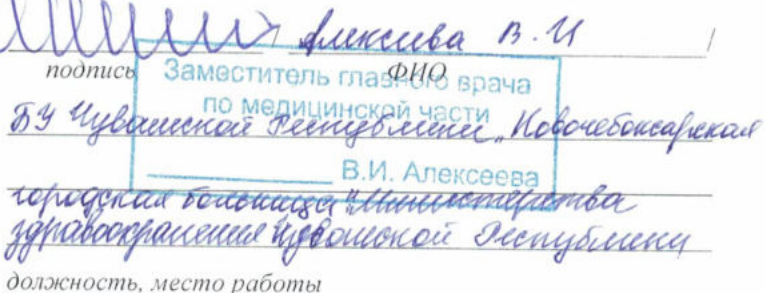 / Алексеева В.И /
подпись ФИО
Заместитель главного врача
по медицинской части
БУ Чувашской Республики „Новочебоксарская
В.И. Алексеева
городская больница" Министерства
здравоохранения Чувашской Республики
должность, место работы